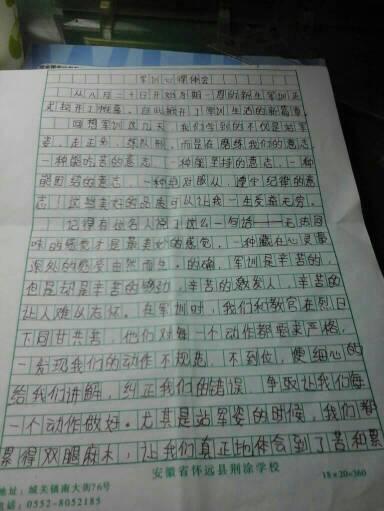 军训心得体会
从八月二十日开始为期一周的新生军训正
式拉开了帷幕,自此掀开了军训生活的新篇章
回想军训这几天,我们学到的不仅是站军
姿、走正步、练队形,而是在磨练我们的意志
一种能吃苦的意志,一种能坚持的意志,一种
能团结的意志,一种绝对服从、遵守纪律的意
志,这些美好的品质可以让我一生受益无穷。
记得有位名人说了这么一句话——无法回
味的感觉才是最美妙的感觉,一种藏在心灵最
深处的感受由然而生。的确,军训是辛苦的,
也是却是辛苦的感动,辛苦的教发人,辛苦的
让人难以忘怀。在军训时,我们和教官在烈日
下同甘共苦,他们对每一个动作都要求严格,
一发现我们的动作不规范,不到位,便细心的
给我们讲解,纠正我们的错误,争取让我们每
一个动作做好。尤其是站军姿的时候,我们都
累得双腿麻木,让我们真正地体会到了苦和累
安徽省怀远县荆涂学校
18×20=360
地址:城关镇南大街76号
电话:0552-8052185